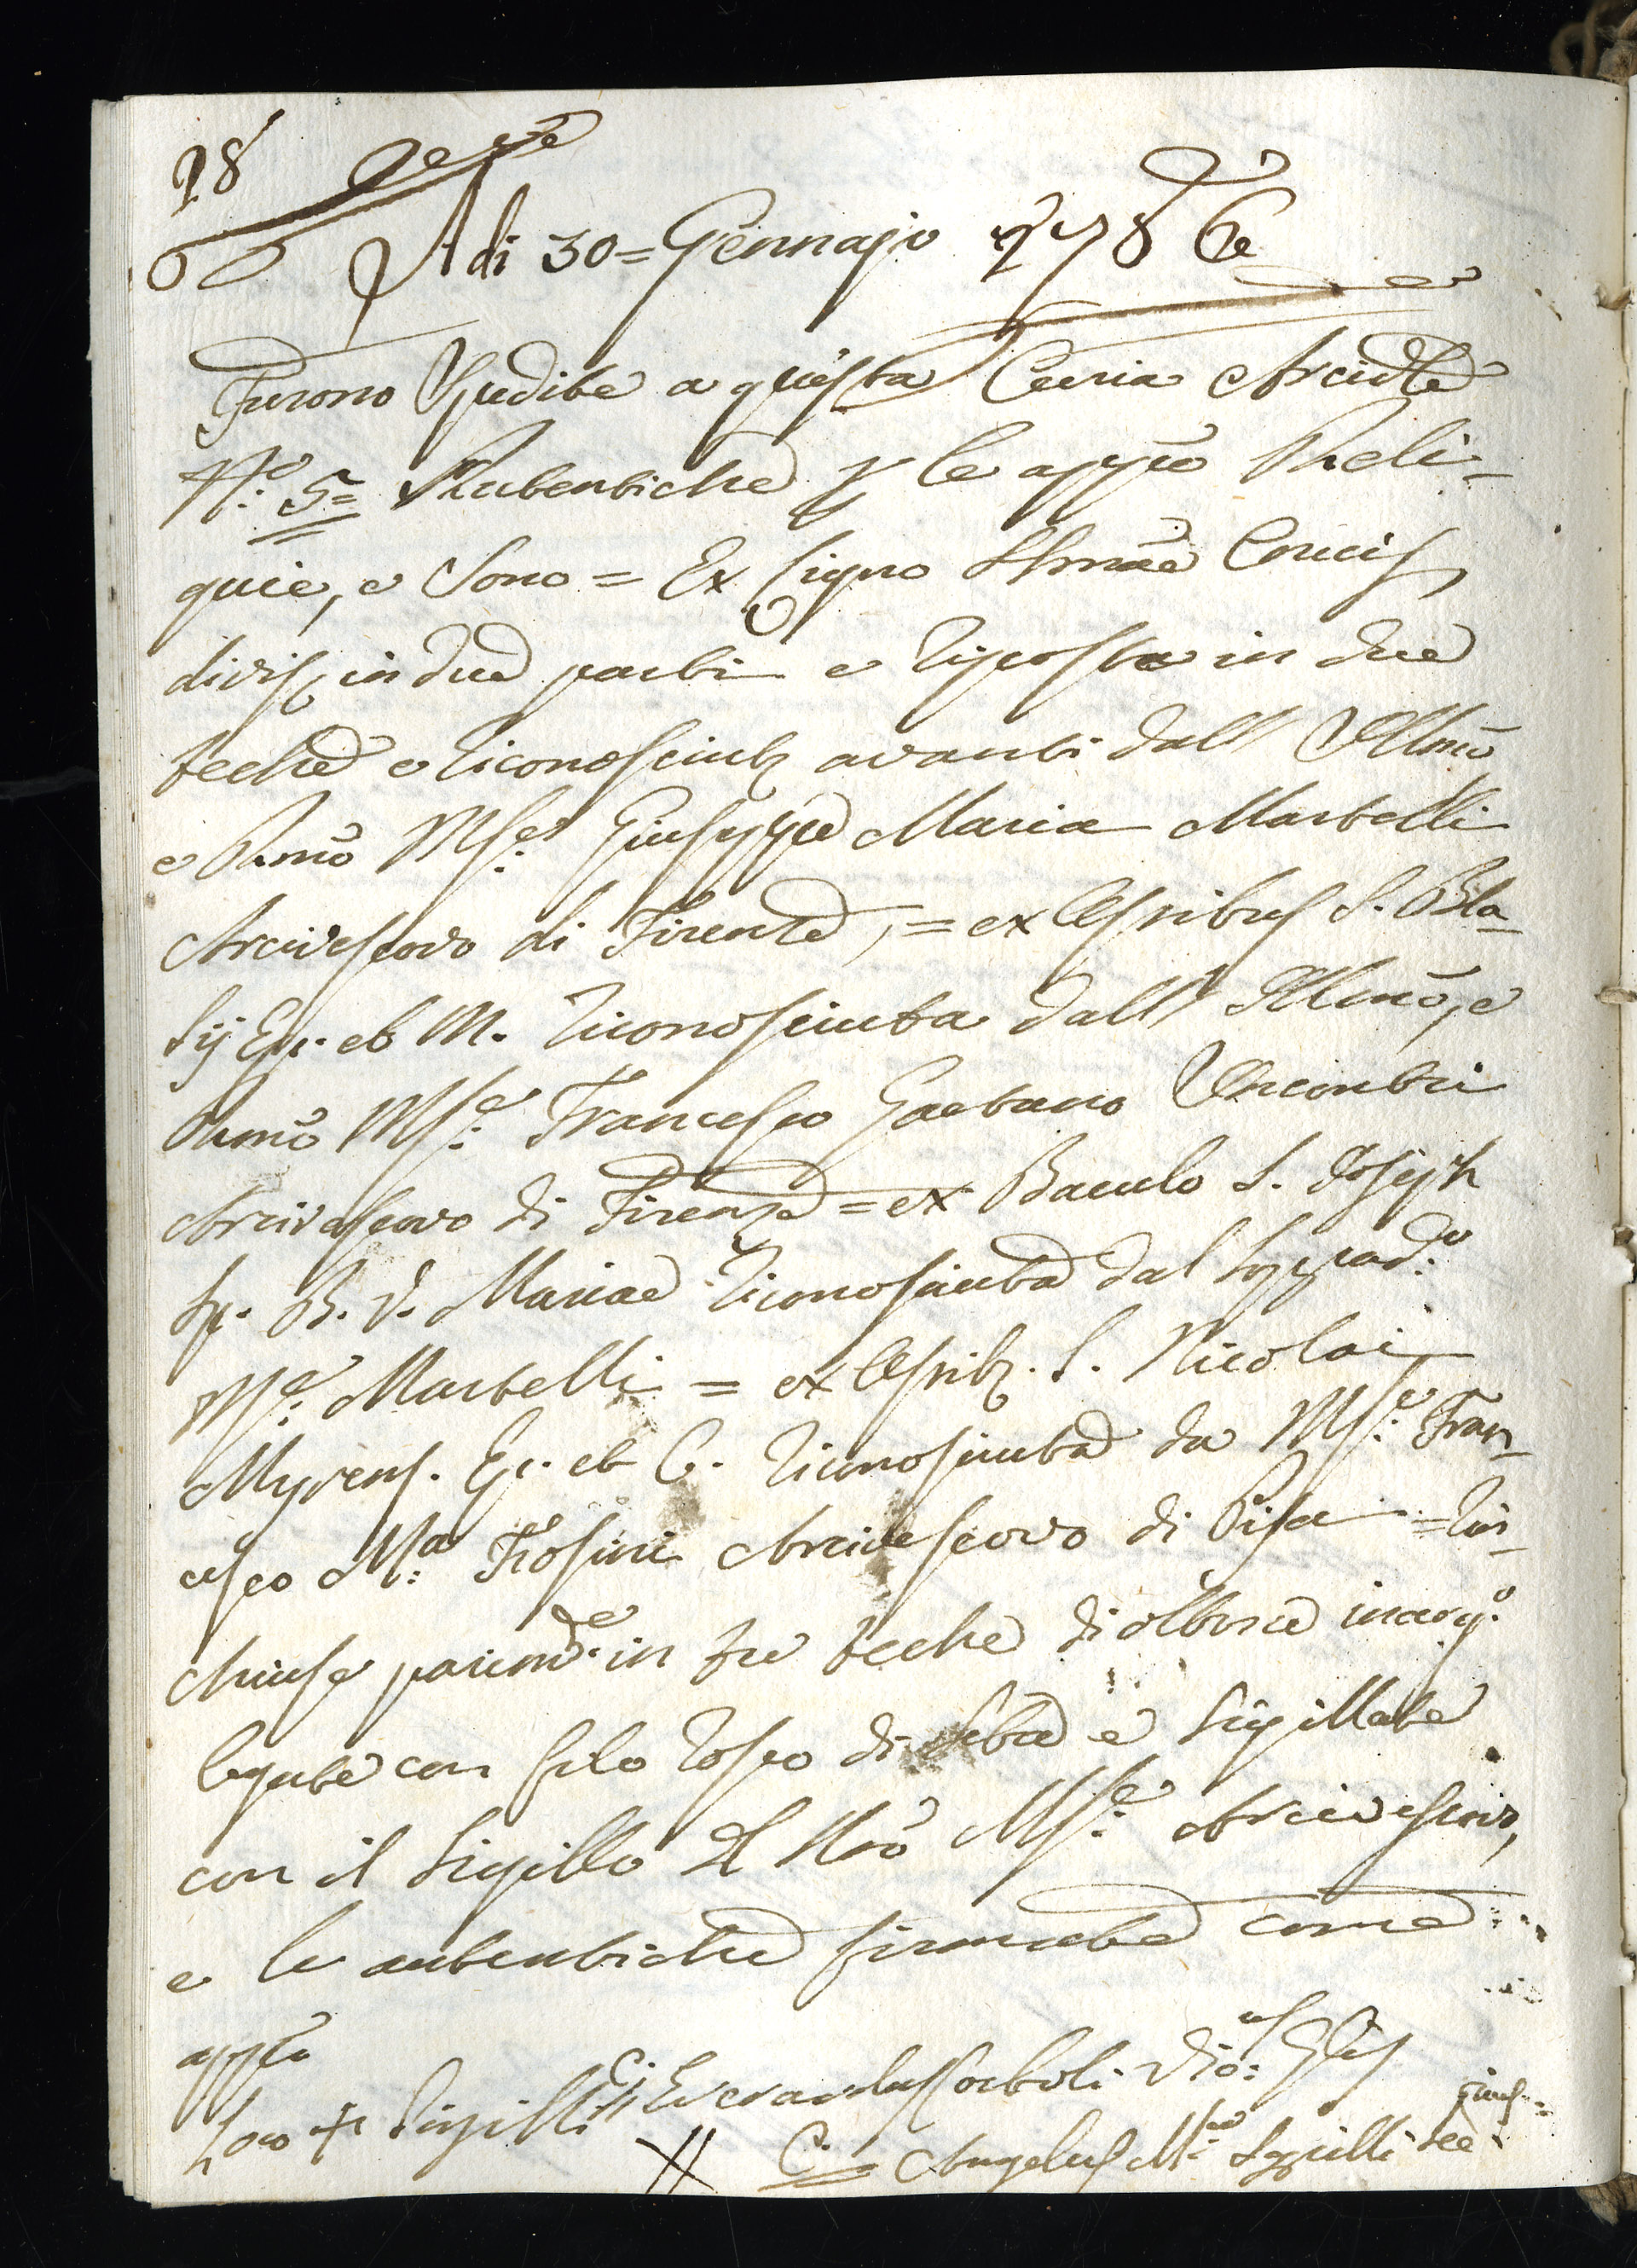 98
Adi 30 = Gennajo 1786
Furono Spedite a questa Curia Arcivle
N.o 5 = Autentiche p le appie Reli-
quie, e Sono = Ex Ligno SSmae Crucis
divis in due parti e riposta in due
teche e riconosciuta avanti dall' Illmo
e Rmo Mse. Giuseppe Maria Martelli
Arcivescovo di Firenze, = ex Ossibus S. Bla-
sij Ep. et M. riconosciuta dall' Illmo, e
Rmo Mse. Francesco Gaetano Incontri
Arcivescovo di Firenze = ex Baculo S. Joseph
Sp. B. V. Mariae riconosciuta dal soppad.o
Mse. Martelli = ex Ossib. S. Nicolai
Myrens. Ep. et C. riconosciuta da Mse. Fran-
cesco M.a Frosini Arcivescovo di Pisa = Rin-
chiuse parimde. in tre teche di Ottone inarg.o
legate con filo rosso di Seta e Sigillate
con il Sigillo del Nro Mse. Arcivescovo,
e le autentiche firmate come
appo
Loco + Sigilli Everardus Corboli Vic.us Glis
C. Angelus M.a Squilli